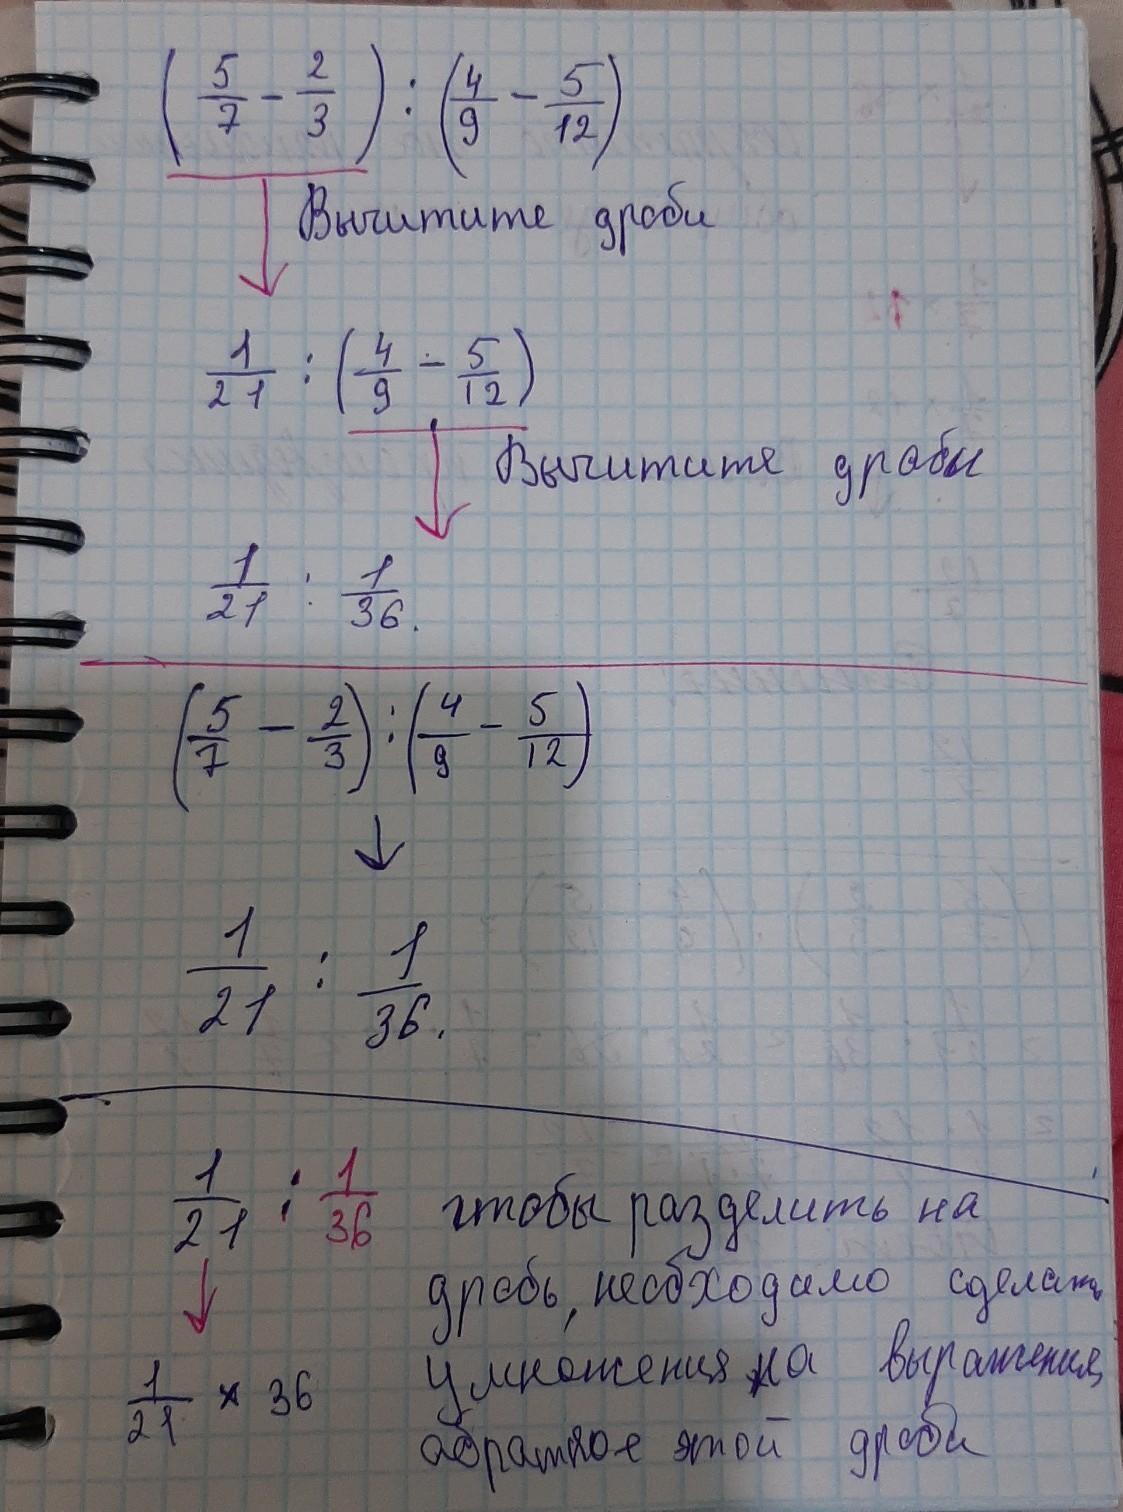 (5/7 - 2/3) : (4/9 - 5/12)
Вычитите дроби
1/21 : (4/9 - 5/12)
Вычитите дробы
1/21 : 1/36.
(5/7 - 2/3) : (4/9 - 5/12)
1/21 : 1/36.
1/21 : 1/36 чтобы разделить на
дробь, необходимо сделать
умножения на выражения,
1/21 × 36
обратное этой дроби